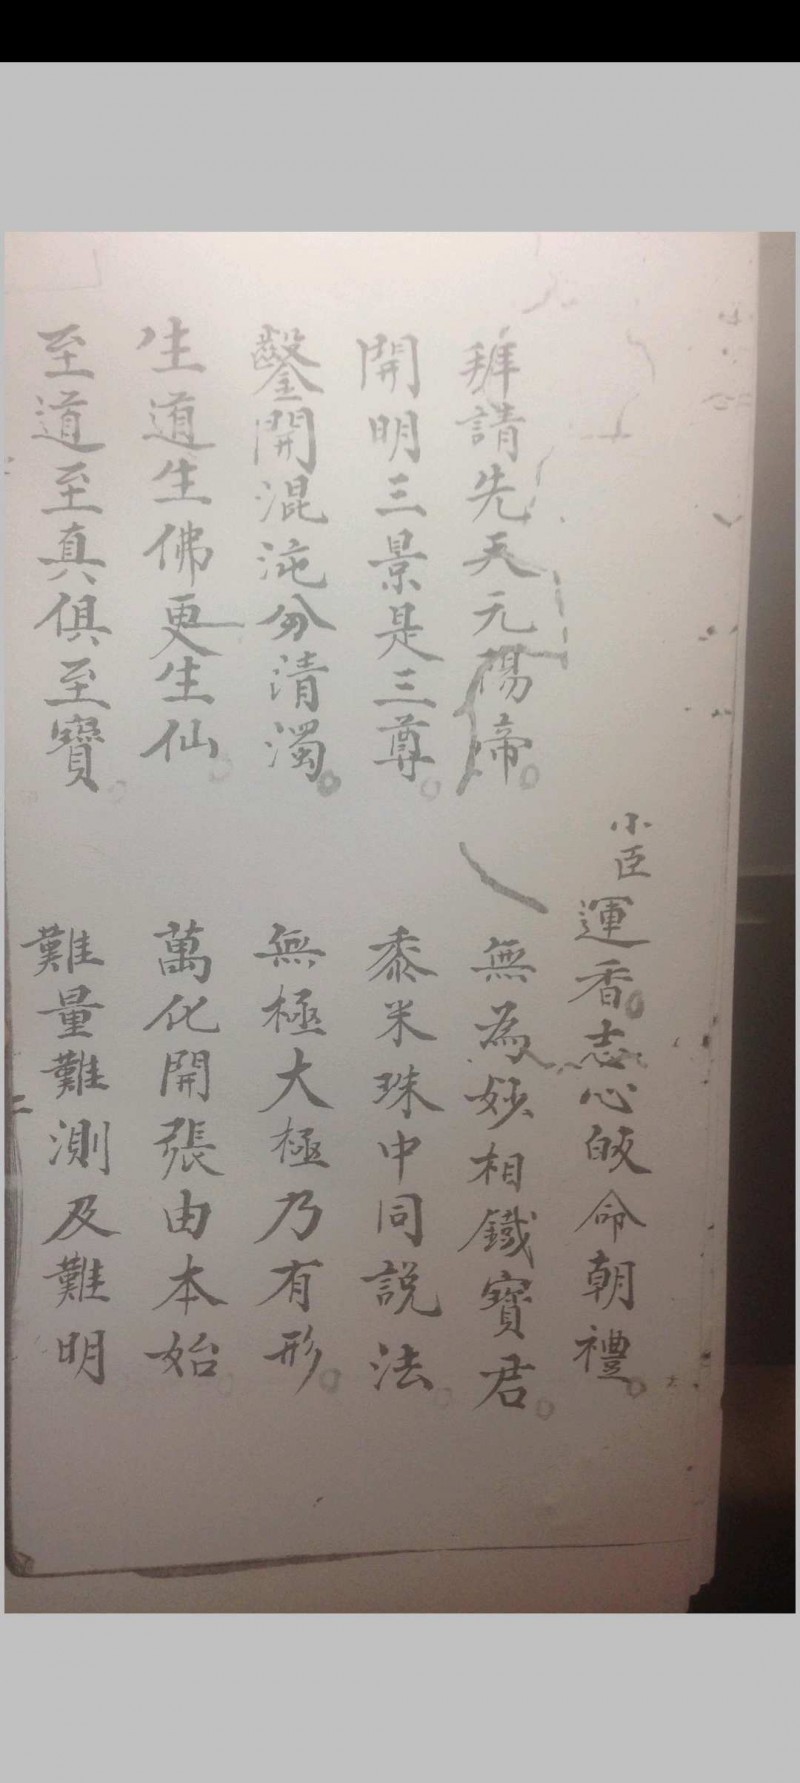 小臣運香志心皈命朝禮。
拜請先天元陽帝。無為妙相鐵寶君。
開明三景是三尊。黍米珠中同説法。
鑿開混沌分清濁。無極大極乃有形。
生道生佛更生仙。萬化開張由本始。
至道至真俱至寶。難量難測及難明